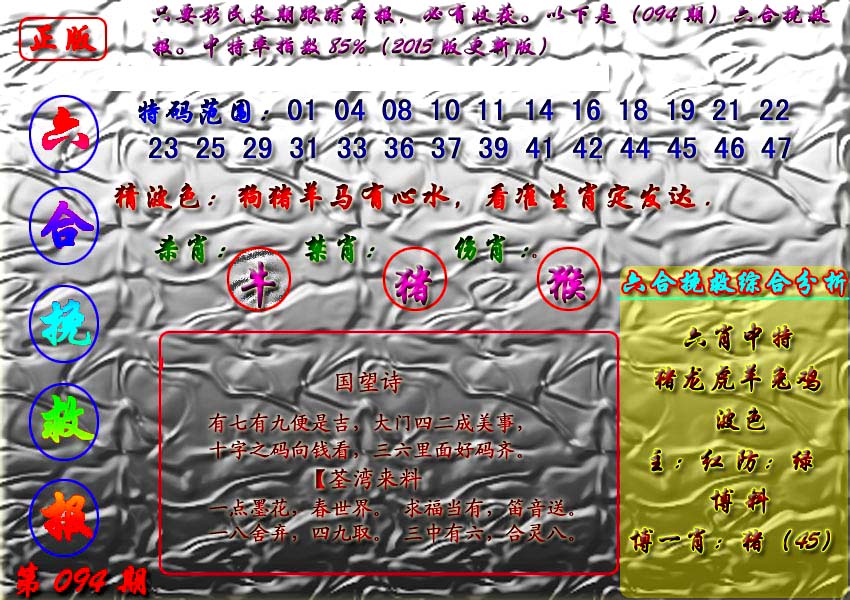 只要彩民长期跟踪本报，必有收获。以下是（094期）六合挽救
报。中特率指数85%（2015版更新版）
正版
六合挽救报
第094期
特码范围：01 04 08 10 11 14 16 18 19 21 22
23 25 29 31 33 36 37 39 41 42 44 45 46 47
猜波色：狗猪羊马有心水，看准生肖定发达.
杀肖：牛 禁肖：猪 伤肖：猴
国望诗
有七有九便是吉，大门四二成美事，
十字之码向钱看，三六里面好码齐。
【荃湾来料
一点墨花，春世界。 求福当有，笛音送。
一八舍弃，四九取。 三中有六，合灵八。
六合挽救综合分析
六肖中特
猪龙虎羊兔鸡
波色
主：红防：绿
博料
博一肖：猪（45）